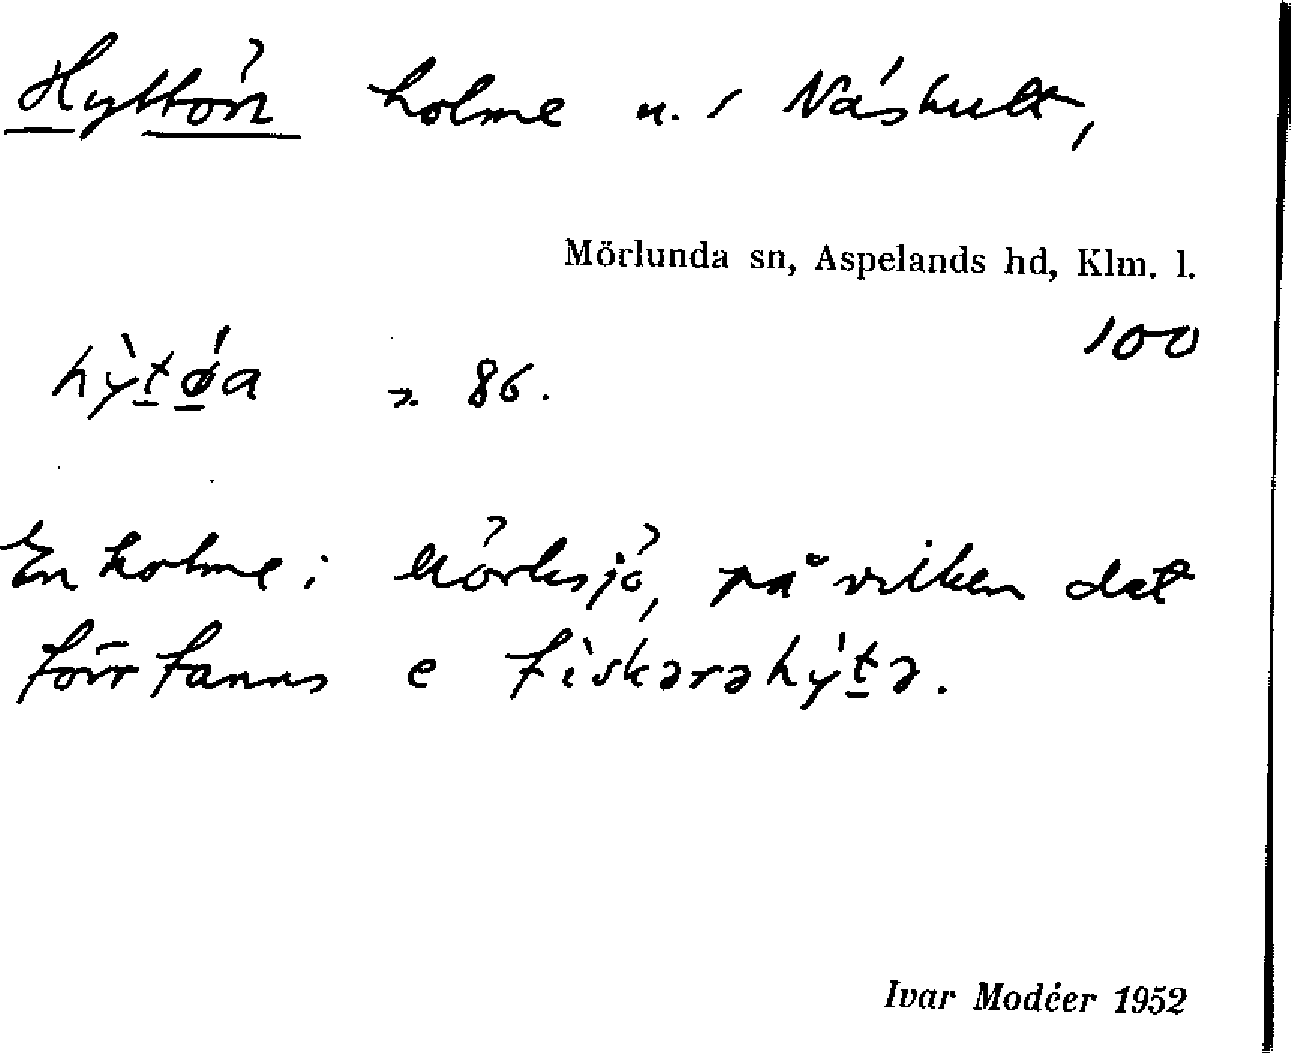 Hyttön holme u. / Näshult,
Mörlunda sn, Aspelands hd, Klm. l.
100
hỳt̠ǿ̠a 2. 86.
En holme i Mörksjö, på vilken det
förr fanns e fìskərəhýt̠ə.
Ivar Modéer 1952